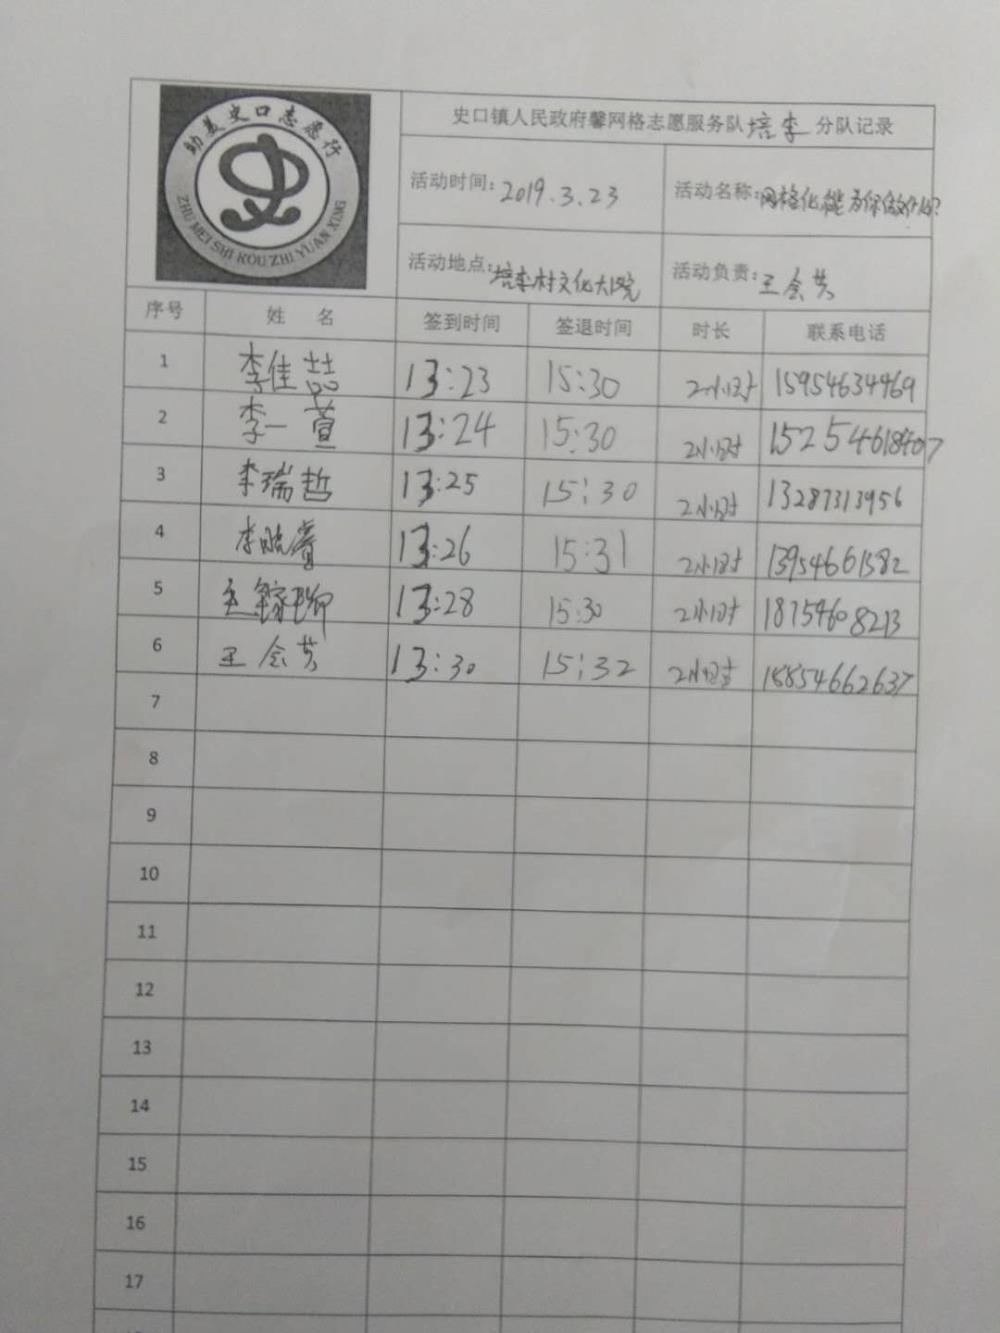 助美史口志愿行
ZHU MEI SHI KOU ZHI YUAN XING
史口镇人民政府馨网格志愿服务队培李分队记录
活动时间:2019.3.23 活动名称:网格化能为你做什么?
活动地点:培李村文化大院 活动负责:王会芳
序号 姓 名 签到时间 签退时间 时长 联系电话
1 李佳喆 13:23 15:30 2小时 15954634469
2 李一萱 13:24 15:30 2小时 15254618407
3 李瑞哲 13:25 15:30 2小时 13287313956
4 李 13:26 15:31 2小时 13954661382
5 13:28 15:30 2小时 18754608213
6 王会芳 13:30 15:32 2小时 15854662637
7
8
9
10
11
12
13
14
15
16
17